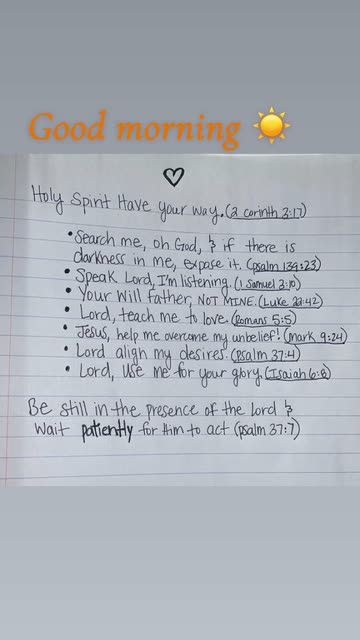 Good morning ☀️
♡
Holy Spirit Have your way. (2 corinth 3:17)
• Search me, oh God, & if there is
darkness in me, expose it. (psalm 139:23)
• Speak Lord, I'm listening. (1 Samuel 3:10)
• Your Will Father, NOT MINE. (Luke 22:42)
• Lord, teach me to love. (Romans 5:5)
• Jesus, help me overcome my unbelief! (mark 9:24)
• Lord align my desires. (Psalm 37:4)
• Lord, use me for your glory. (Isaiah 6:8)
Be still in the presence of the Lord &
wait patiently for Him to act (psalm 37:7)